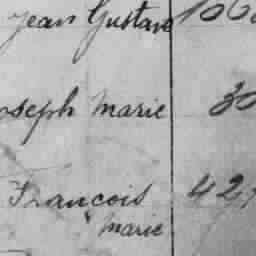 Jean Gustave 106
oseph Marie 30
François 42,
Marie